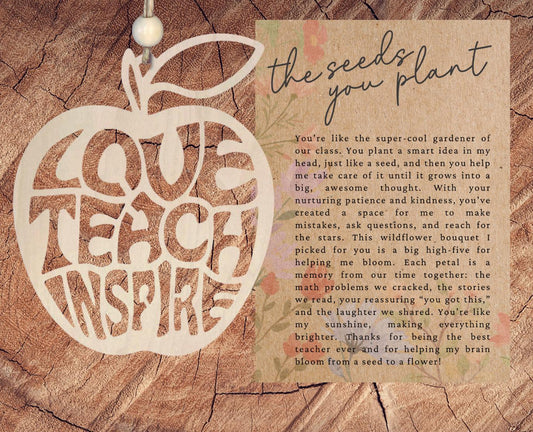 LOVE
TEACH
INSPIRE
the seeds
you plant
You're like the super-cool gardener of
our class. You plant a smart idea in my
head, just like a seed, and then you help
me take care of it until it grows into a
big, awesome thought. With your
nurturing patience and kindness, you've
created a space for me to make
mistakes, ask questions, and reach for
the stars. This wildflower bouquet I
picked for you is a big high-five for
helping me bloom. Each petal is a
memory from our time together: the
math problems we cracked, the stories
we read, your reassuring "you got this,"
and the laughter we shared. You're like
my sunshine, making everything
brighter. Thanks for being the best
teacher ever and for helping my brain
bloom from a seed to a flower!